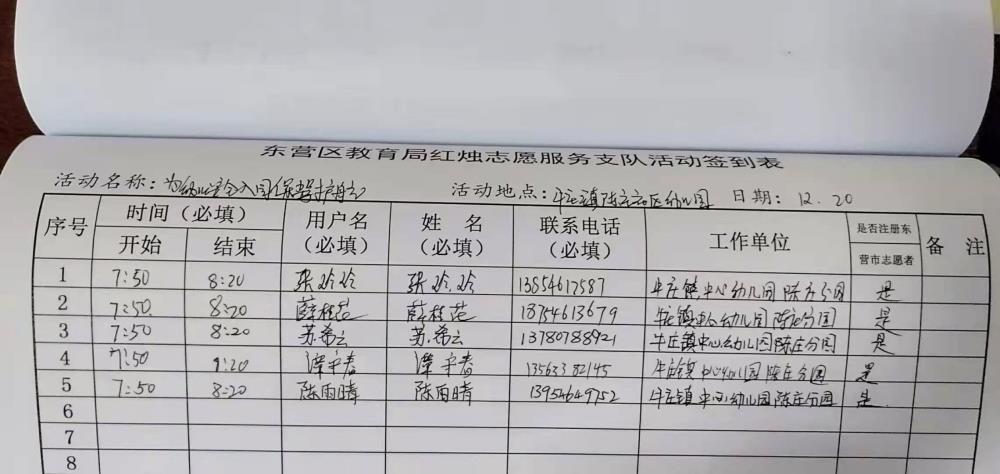 东营区教育局红烛志愿服务支队活动签到表
活动名称：为幼儿安全入园保驾护航 活动地点：牛庄镇陈庄社区幼儿园 日期：12.20
序号 时间（必填） 用户名（必填） 姓 名（必填） 联系电话（必填） 工作单位 是否注册东营市志愿者 备 注
开始 结束
1 7:50 8:20 张玲玲 张玲玲 13854617587 牛庄镇中心幼儿园陈庄分园 是
2 7:50 8:20 薛桂范 薛桂范 18754613679 牛庄镇中心幼儿园陈庄分园 是
3 7:50 8:20 苏希云 苏希云 13780788921 牛庄镇中心幼儿园陈庄分园 是
4 7:50 8:20 春 春 13563382145 牛庄镇中心幼儿园陈庄分园 是
5 7:50 8:20 陈雨晴 陈雨晴 13954649752 牛庄镇中心幼儿园陈庄分园 是
6
7
8